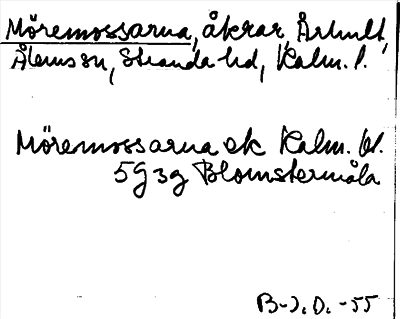 Möremossarna, åkrar, Århult,
Ålems sn, Stranda hd, Kalm. l.
Möremossarna ek Kalm. bl.
5G 3g Blomstermåla
B-J.O. -55